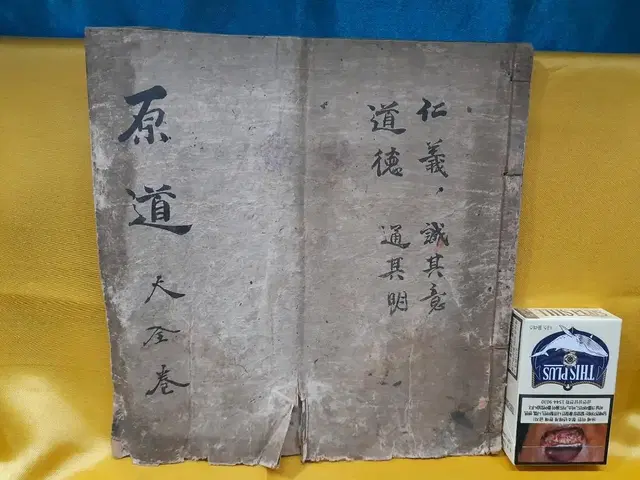 仁義, 誠其意
道德 通其明
原道 天全卷
THIS PLUS